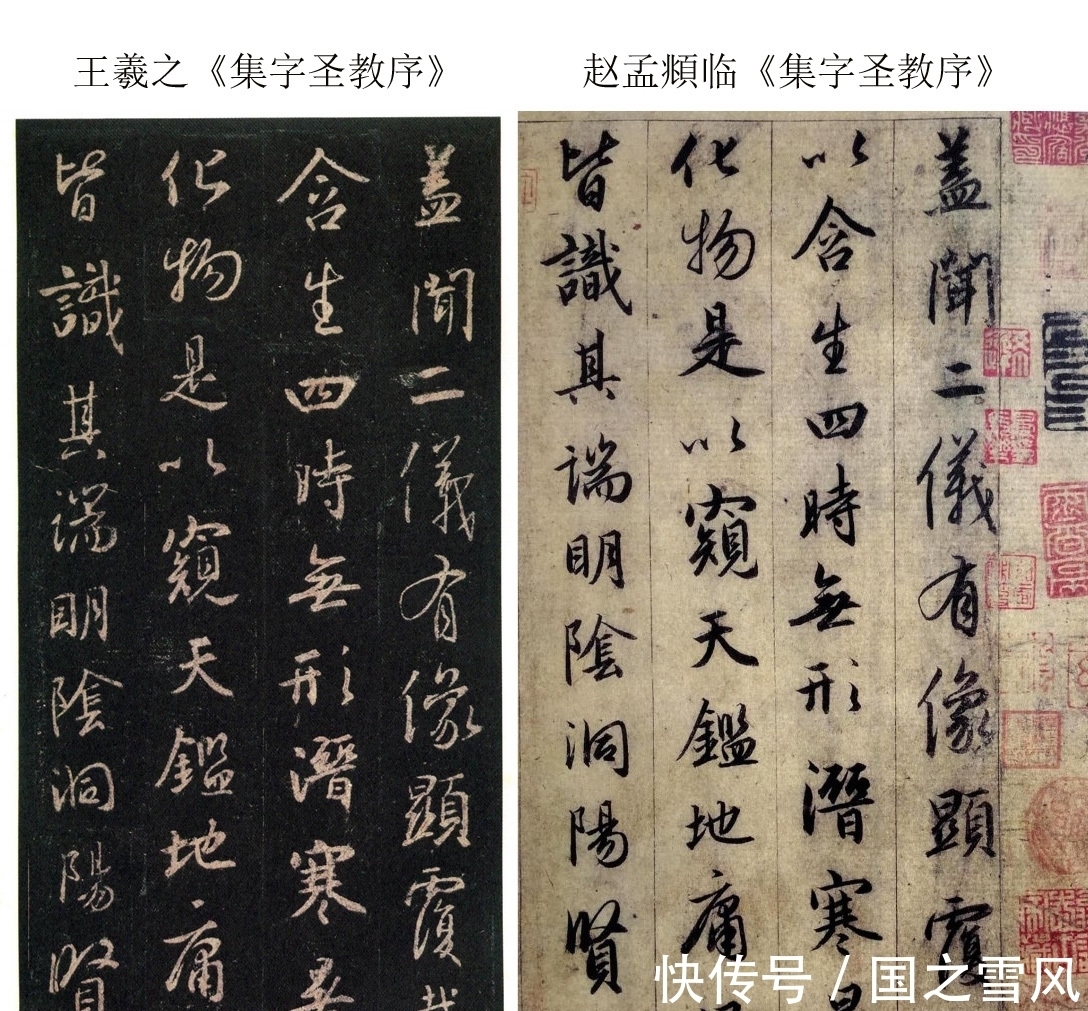 王羲之《集字圣教序》
赵孟頫临《集字圣教序》
蓋聞二儀有像顯覆
含生四時無形潛寒暑
化物是以窺天鑑地庸
皆識其端明陰洞陽賢
蓋聞二儀有像顯覆
以含生四時無形潛寒
化物是以窺天鑑地庸
皆識其端明陰洞陽賢
快传号 / 国之雪风